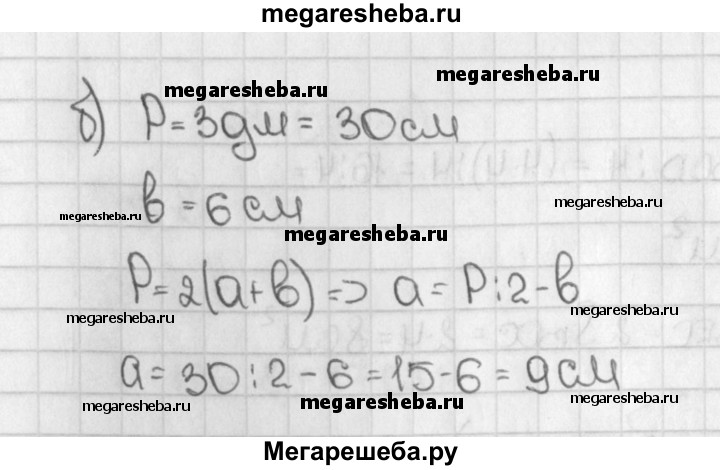 megaresheba.ru
megaresheba.ru
megaresheba.ru
б) P = 3дм = 30 см
megaresheba.ru
megaresheba.ru
в = 6 см
megaresheba.ru
P = 2(а+в) => а = P:2-в
megaresheba.ru
megaresheba.ru
а = 30:2-6 = 15-6 = 9 см
megaresheba.ru
megaresheba.ru
megaresheba.ru
Мегарешеба.ру